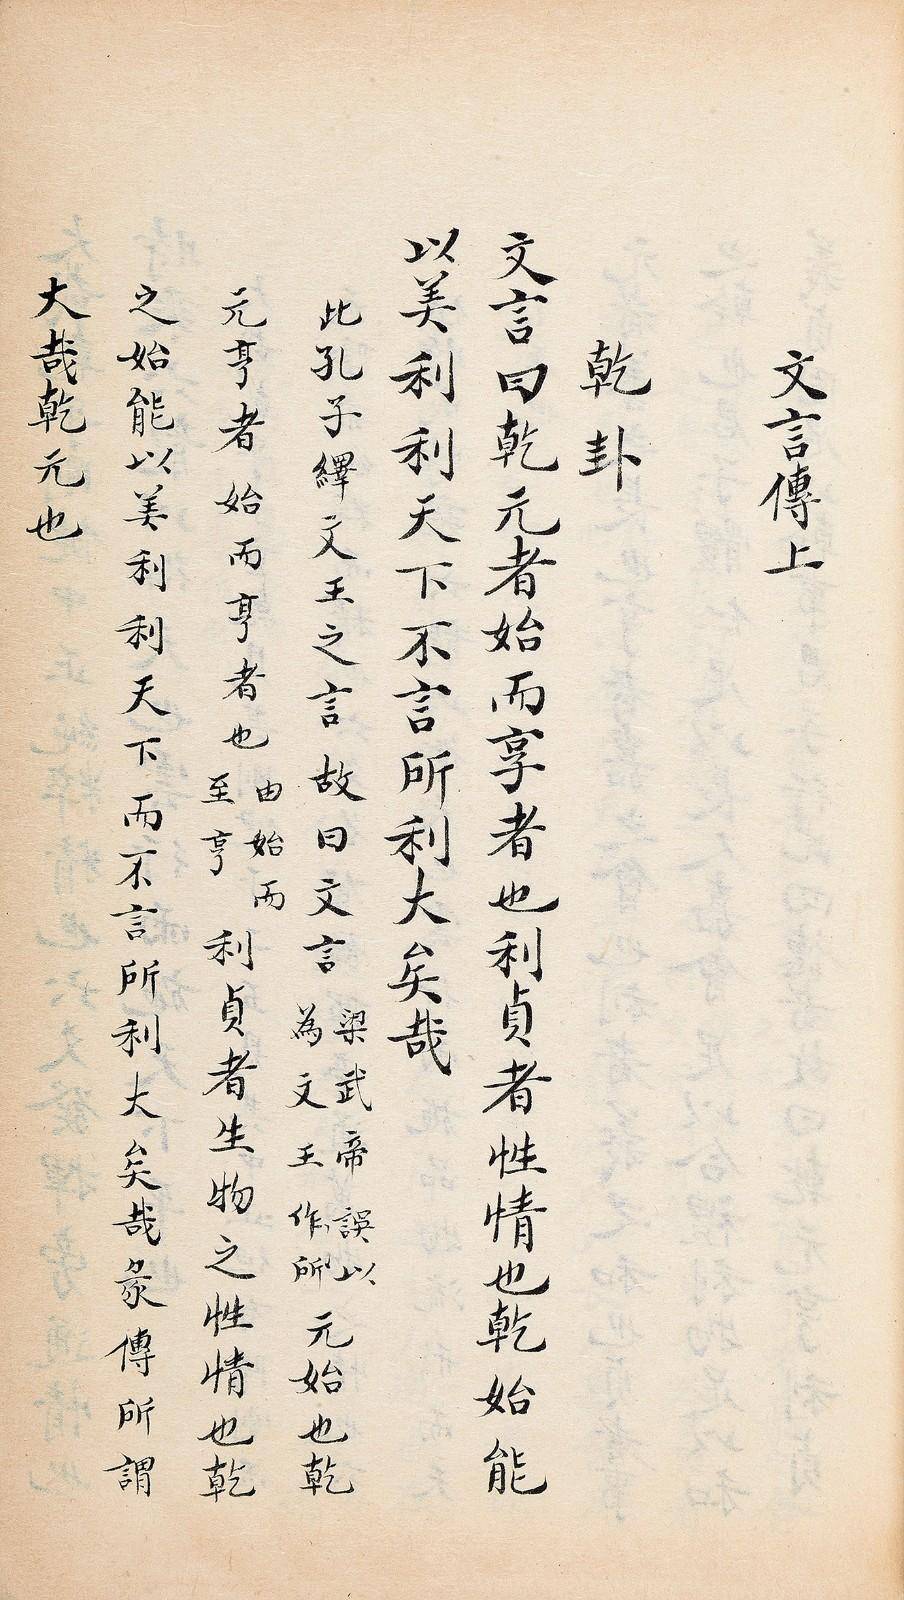 文言傳上
乾卦
文言曰乾元者始而享者也利貞者性情也乾始能
以美利利天下不言所利大矣哉
此孔子繹文王之言故曰文言梁武帝誤以為文王作所元始也乾
元亨者始而亨者也由始而至亨利貞者生物之性情也乾
之始能以美利利天下而不言所利大矣哉彖傳所謂
大哉乾元也